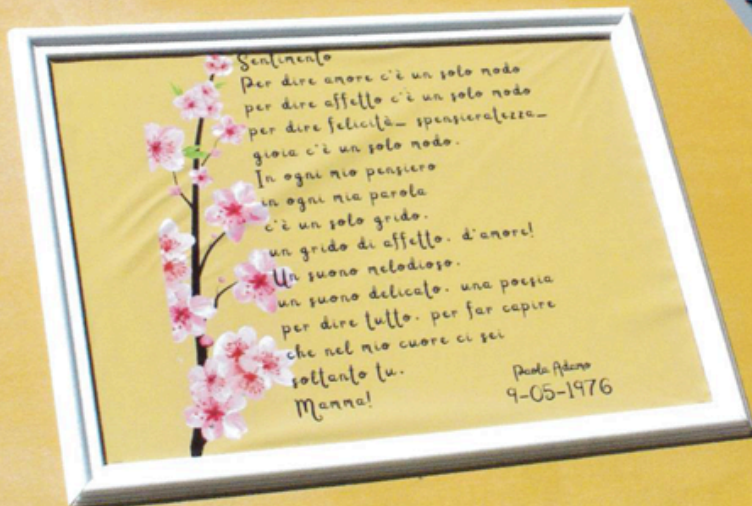 Sentimento
Per dire amore c'è un solo modo
per dire affetto c'è un solo modo
per dire felicità_ spensieratezza_
gioia c'è un solo modo.
In ogni mio pensiero
in ogni mia parola
c'è un solo grido.
un grido di affetto. d'amore!
Un suono melodioso.
un suono delicato. una poesia
per dire tutto. per far capire
che nel mio cuore ci sei
soltanto tu.
Mamma!
Paola Adamo
9-05-1976